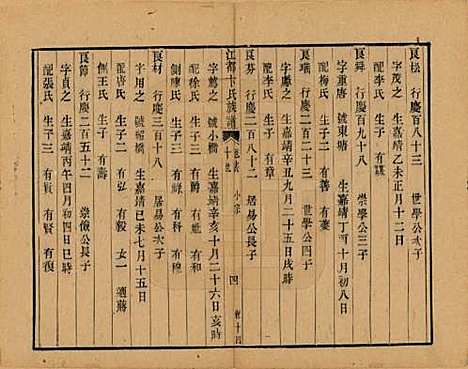 良松 行慶百八十三 世學公次子
字茂之 生嘉靖乙未正月十二日
配李氏 生子一 有謨
良舜 行慶百九十八 崇學公三子
字重唐 號東塘 生嘉靖丁酉十月初八日
配梅氏 生子二 有善 有
良瑞 行慶二百二十三 世學公四子
字獻之 生嘉靖辛丑九月二十五日戌時
配李氏 生子一 有章
良芬 行慶二百八十二 居易公長子
江都卞氏族譜 卷 十 小宗 四
字蕙之 號小橋 生嘉靖辛亥十月二十六日亥時
配徐氏 生子二 有爵 有和
側陳氏 生子三 有祿 有科 有穆
良材 行慶三百十八 居易公次子
字用之 號櫂橋 生嘉靖己未七月十五日
配唐氏 生子二 有弘 有毅 女一 適蔣
側王氏 生子一 有壽
良節 行慶二百五十二 崇儉公長子
字貞之 生嘉靖丙午四月初四日巳時
配張氏 生子三 有貴 有賢 有